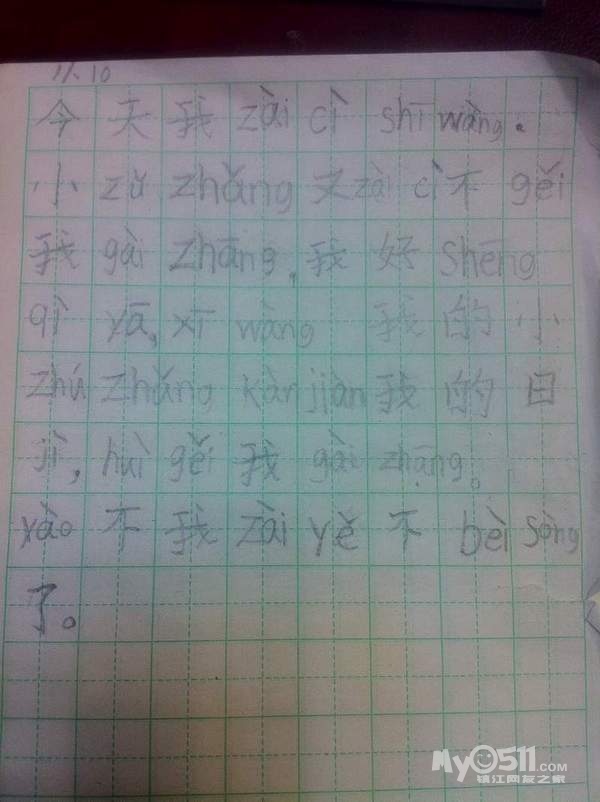 11.10
今天我zài cì shī wàng。
小zǔ zhǎng又zài cì不gěi
我gài zhāng,我好shēng
qì yā,xī wàng我的小
zhú zhǎng kàn jiàn我的日
jì,huì gěi我gài zhāng。
yào不我zài yě不bèi sòng
了。
My0511.COM
镇江网友之家